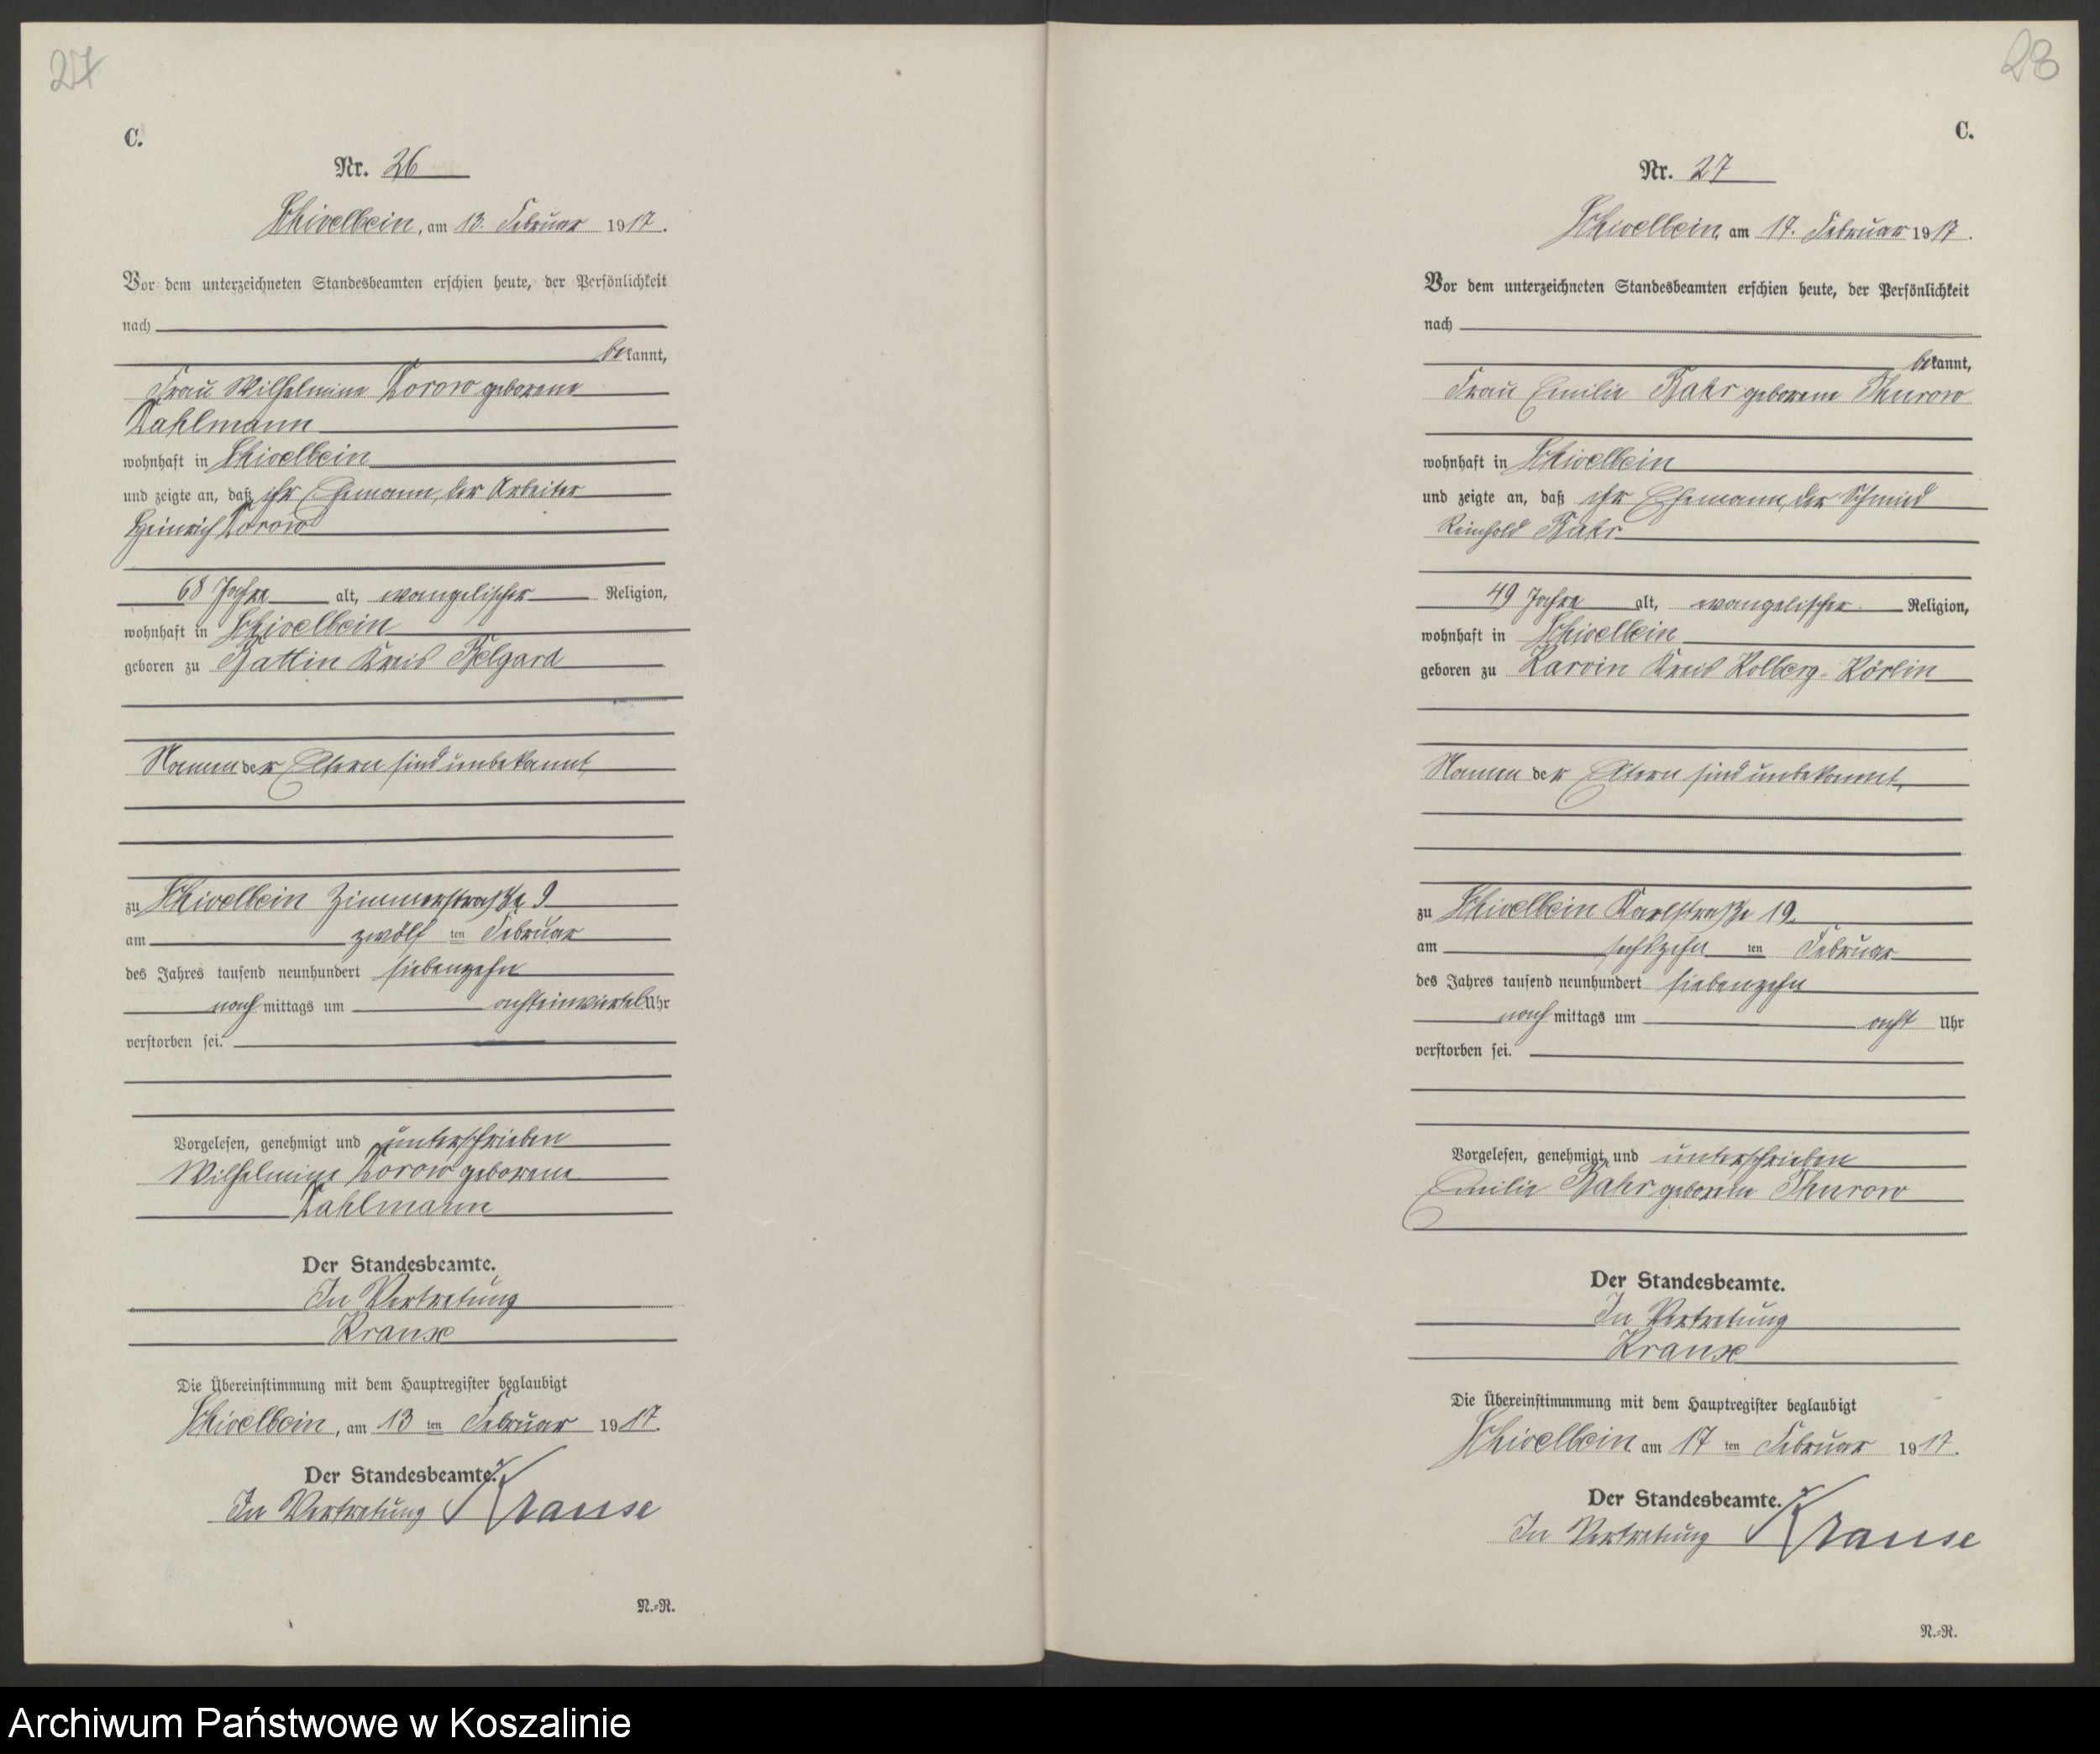 27
C.
Nr. 26
Schivelbein, am 13. Februar 1917.
Vor dem unterzeichneten Standesbeamten erschien heute, der Persönlichkeit
nach
bekannt,
Frau Wilhelmine Dorow geborene
Dahlmann
wohnhaft in Schivelbein
und zeigte an, daß ihr Ehemann, der Arbeiter
Heinrich Dorow
68 Jahre alt, evangelischer Religion,
wohnhaft in Schivelbein
geboren zu Battin Kreis Belgard
Namen der Eltern sind unbekannt
zu Schivelbein Zimmerstraße 9
am zwölf ten Februar
des Jahres tausend neunhundert siebenzehn
nach mittags um achteinviertel Uhr
verstorben sei.
Vorgelesen, genehmigt und unterschrieben
Wilhelmine Dorow geborene
Dahlmann
Der Standesbeamte.
In Vertretung
Krause
Die Übereinstimmung mit dem Hauptregister beglaubigt
Schivelbein, am 13 ten Februar 1917.
Der Standesbeamte.
In Vertretung Krause
N.-R.
28
C.
Nr. 27
Schivelbein, am 17. Februar 1917.
Vor dem unterzeichneten Standesbeamten erschien heute, der Persönlichkeit
nach
bekannt,
Frau Emilie Bahr geborene Thurow
wohnhaft in Schivelbein
und zeigte an, daß ihr Ehemann, der Schmied
Reinhold Bahr
49 Jahre alt, evangelischer Religion,
wohnhaft in Schivelbein
geboren zu Karvin Kreis Kolberg-Körlin
Namen der Eltern sind unbekannt,
zu Schivelbein Karlstraße 19.
am sechszehn ten Februar
des Jahres tausend neunhundert siebenzehn
nach mittags um acht Uhr
verstorben sei.
Vorgelesen, genehmigt und unterschrieben
Emilie Bahr geborene Thurow
Der Standesbeamte.
In Vertretung
Krause
Die Übereinstimmmung mit dem Hauptregister beglaubigt
Schivelbein am 17 ten Februar 1917.
Der Standesbeamte.
In Vertretung Krause
N.-R.
Archiwum Państwowe w Koszalinie